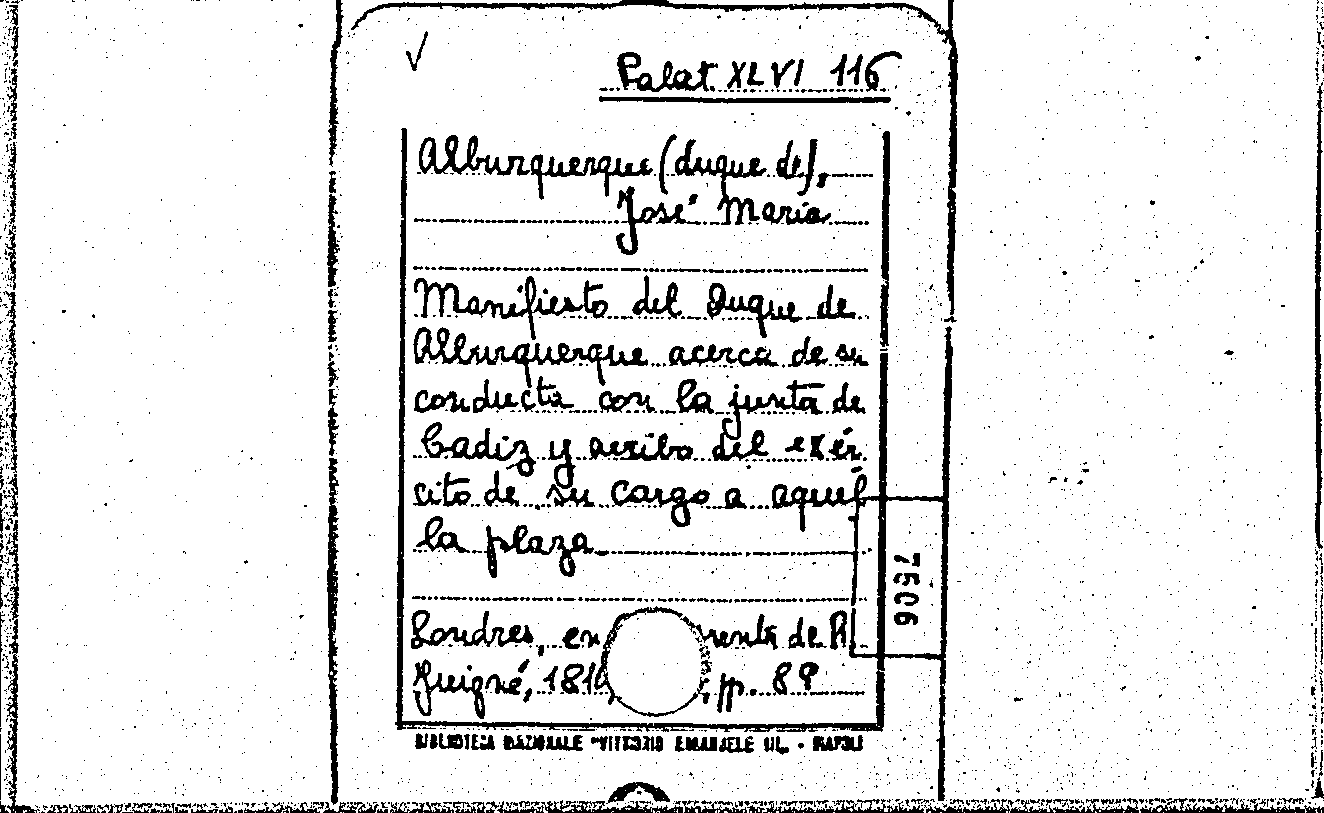 Palat. XLVI 116
Alburquerque (duque de),
José Maria
Manifiesto del Duque de
Alburquerque acerca de su
conducta con la junta de
Cadiz y arribo del exér
cito de su cargo a aquel
la plaza
Londres, en de R.
Juigné, 181 pp. 89
BIBLIOTECA NAZIONALE "VITTORIO EMANUELE III" - NAPOLI
7506